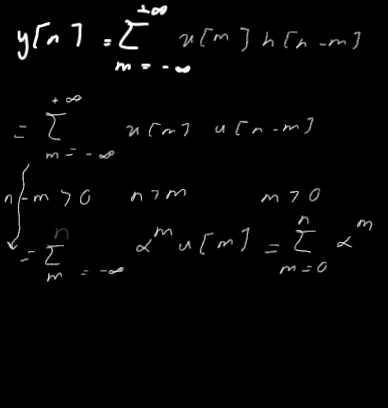 y[n] = Σ_{m=-∞}^{+∞} x[m] h[n-m]
= Σ_{m=-∞}^{+∞} x[m] u[n-m]
n-m > 0 n > m m > 0
= Σ_{m=-∞}^{n} α^m u[m] = Σ_{m=0}^{n} α^m